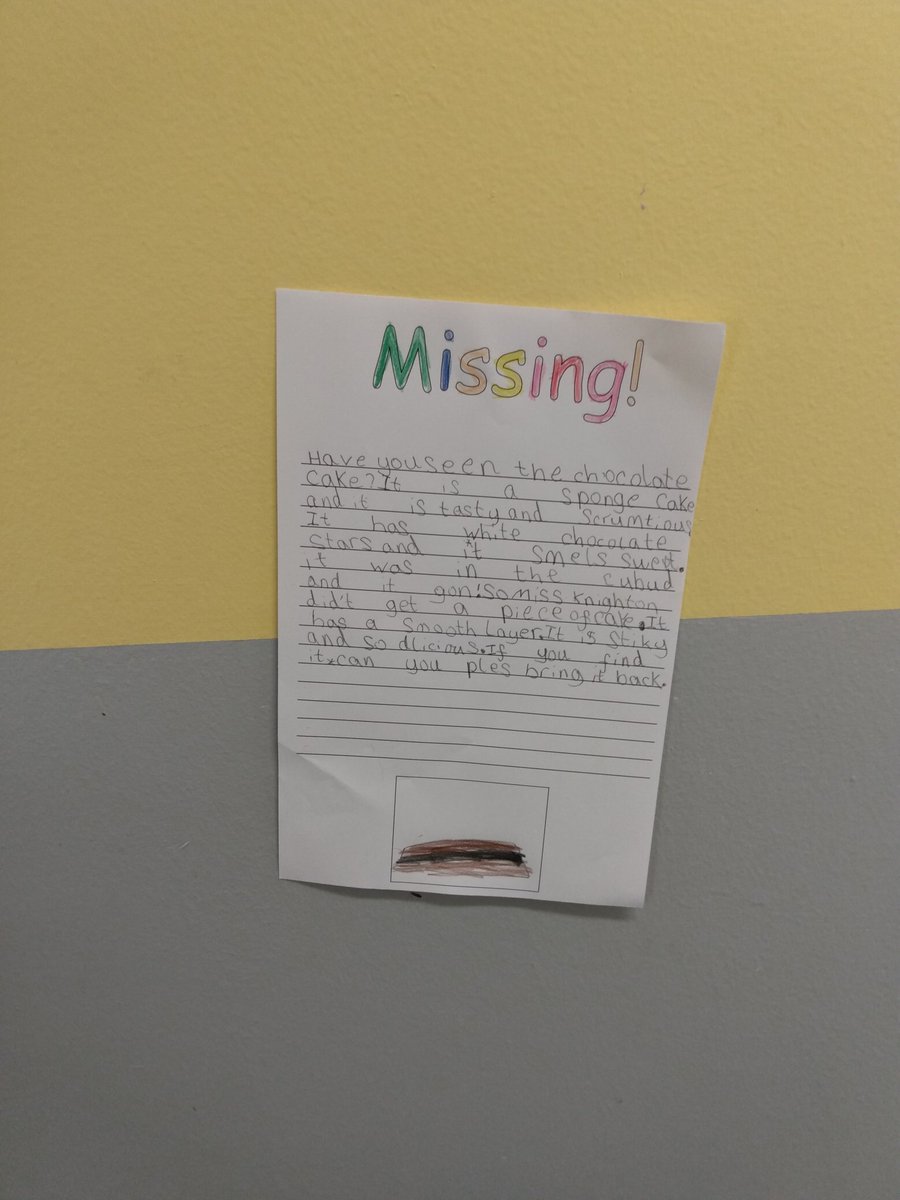 Missing!
Have you seen the chocolate
cake? It is a sponge cake
and it is tasty and scrumtious
It has white chocolate
stars and it smels swet.
it was in the cubud
and it gon! So miss Knighton
did't get a piece of cake. It
has a smooth layer. It is stiky
and so dlicious. If you find
it can you ples bring it back.